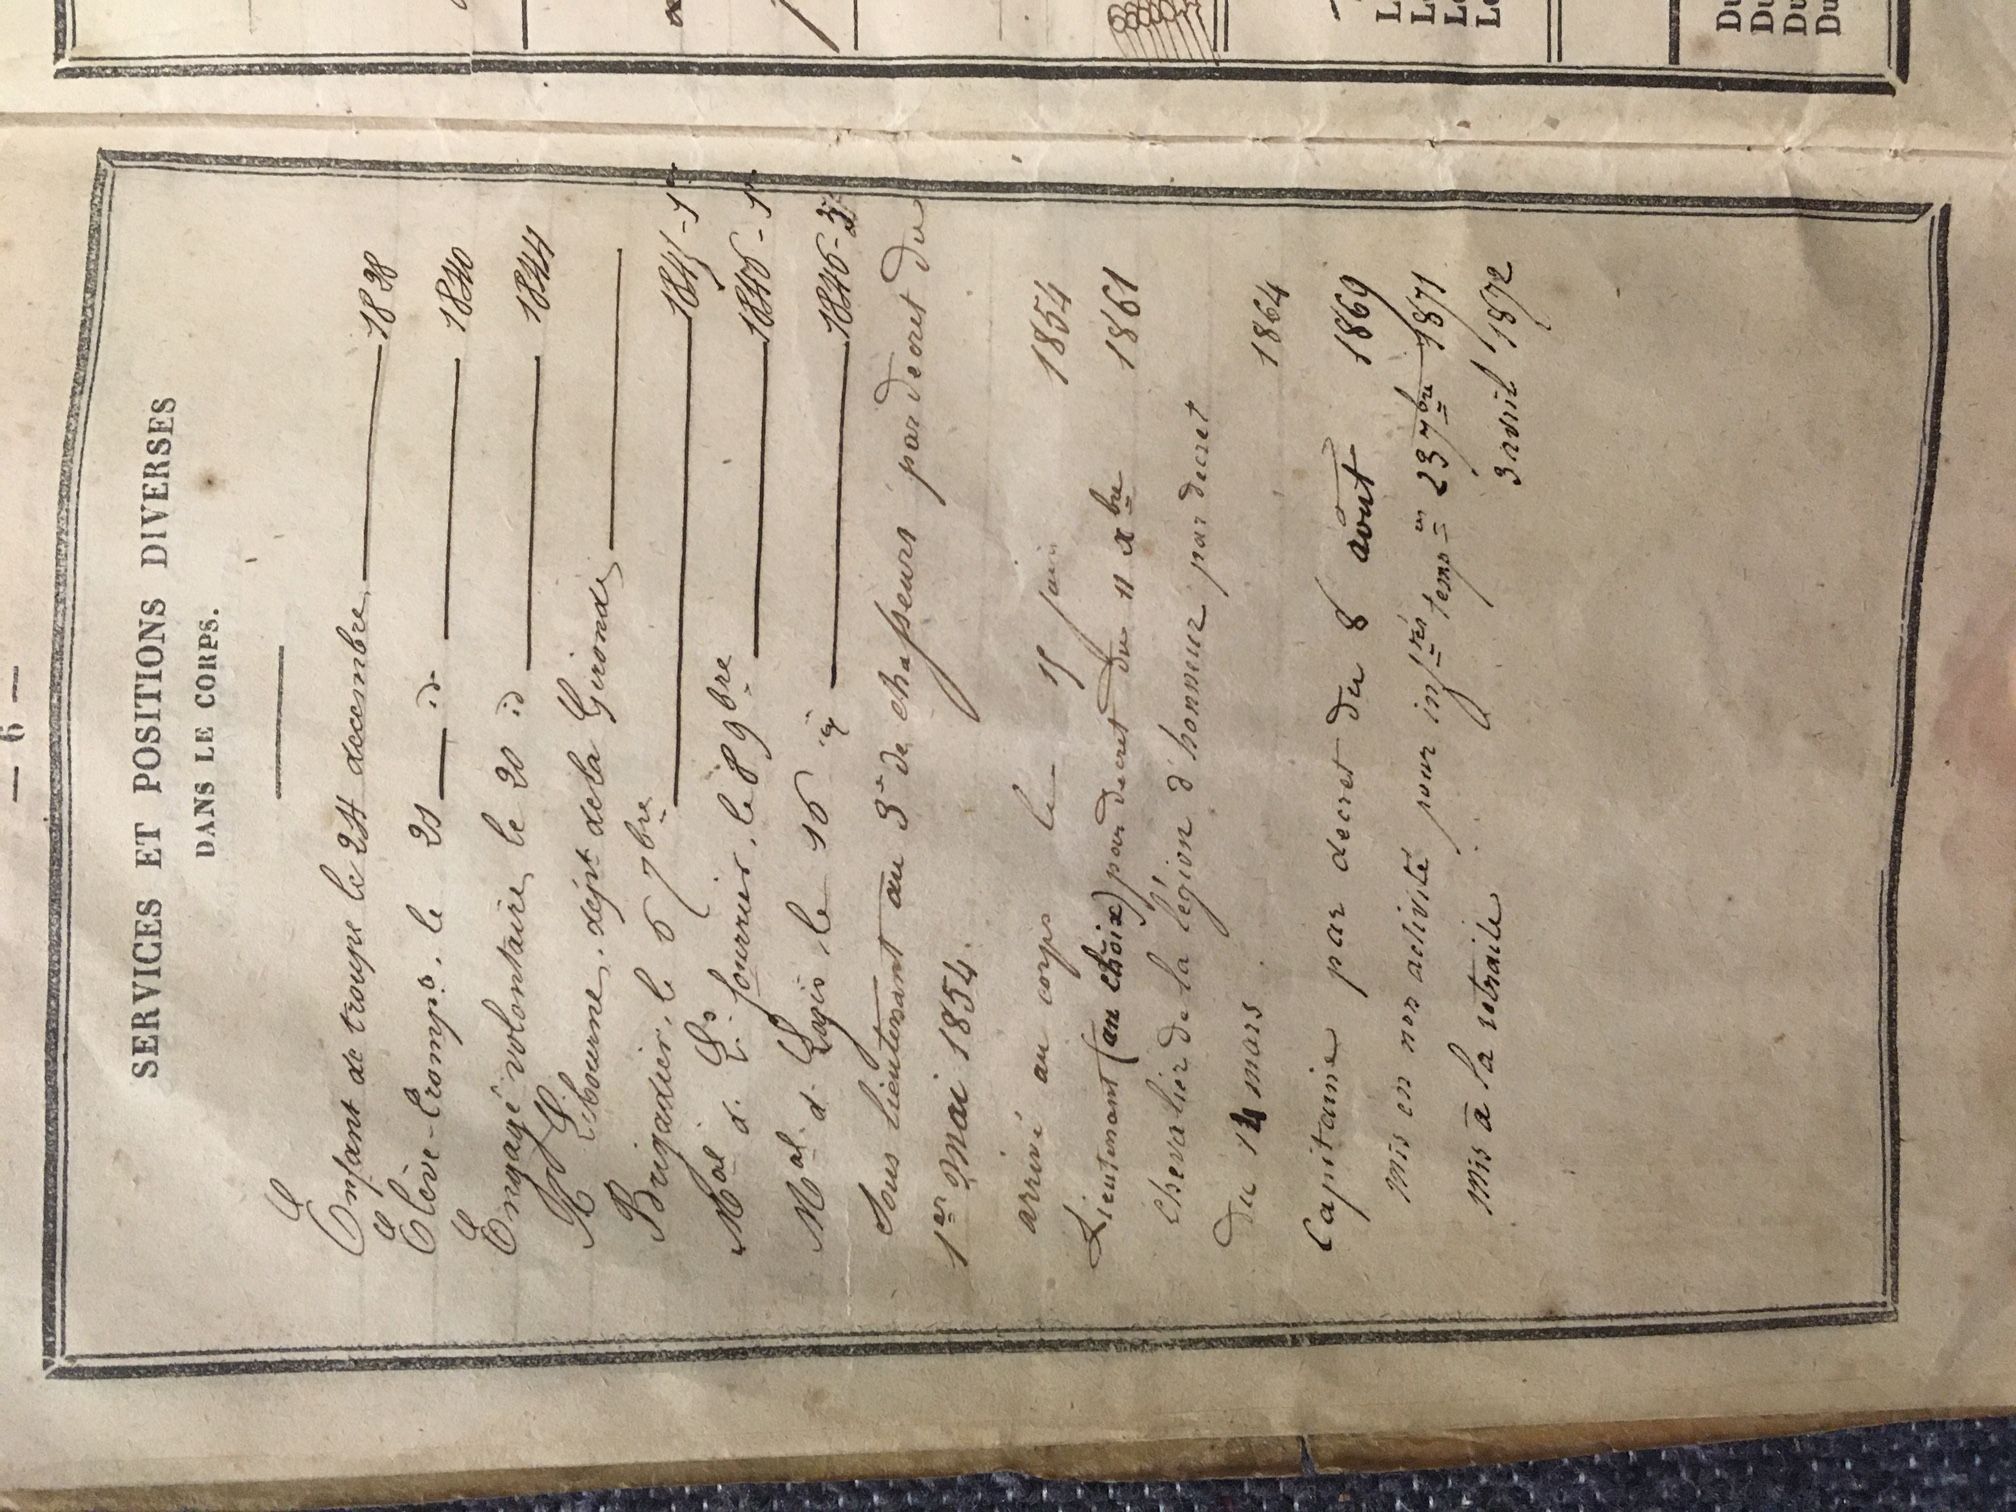 — 6 —
SERVICES ET POSITIONS DIVERSES
DANS LE CORPS.
Enfant de troupe le 24 decembre 1838
Elève-Tromp. le 21 — id 1840
Engagé volontaire le 20 id 1844
A Libourne. dépt de la Gironde
Brigadier. le 6 7bre 1845 - 1er
Mal d. Ls fourrier. le 8 9bre 1846 - 1er
Mal. d. Logis. le 16 id 1846 -
Sous lieutenant au 3e de chasseurs par decret du
1er Mai 1854.
arrivé au corps le 15 juin 1854
Lieutenant (au choix) par decret du 11 xbre 1861
Chevalier de la légion d'honneur par decret
du 14 mars 1864
Capitaine par decret du 8 août 1869
Mis en non activité pour infirés tempres 23 7bre 1871
Mis à la retraite 3 avril 1872
Du
Du
Du
Du